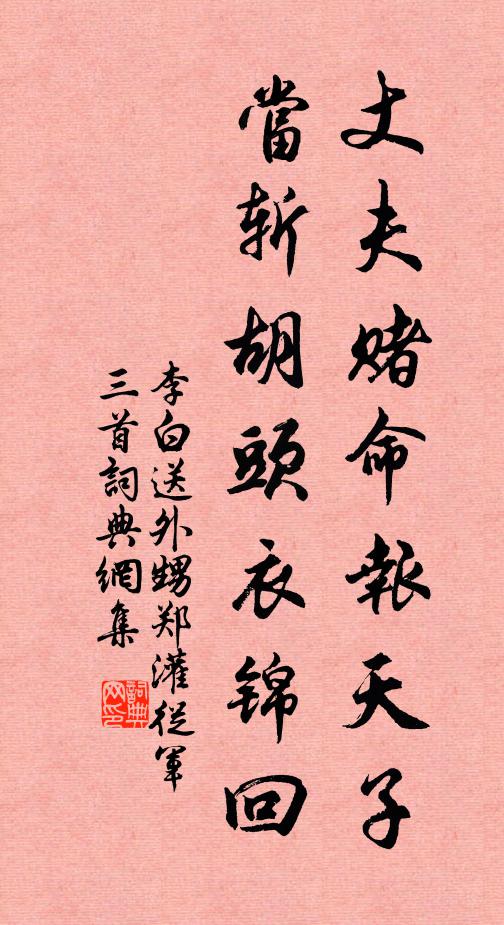 丈夫赌命報天子
當斩胡頭衣锦回
李白送外甥郑灌從軍
三首詞典網集
詞典
网印